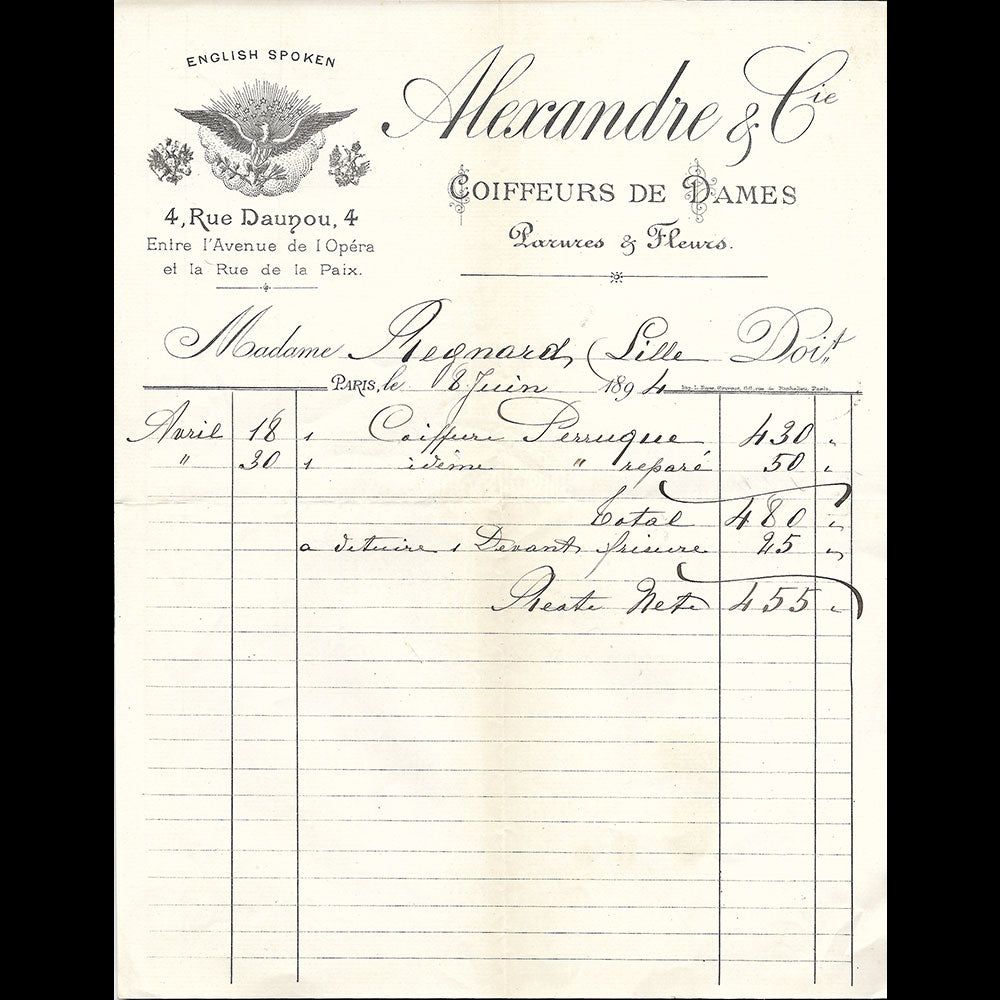 ENGLISH SPOKEN
Alexandre & Cie
COIFFEURS DE DAMES
Parures & Fleurs.
4, Rue Daunou, 4
Entre l'Avenue de l'Opéra
et la Rue de la Paix.
Madame Regnard, Lille Doit
PARIS, le 8 Juin 1894
Avril 18 1 Coiffure Perruque 430 "
" 30 1 idéme " reparé 50 "
Total 480 "
a detuire 1 Devant frisure 25 "
Reste Net 455 "